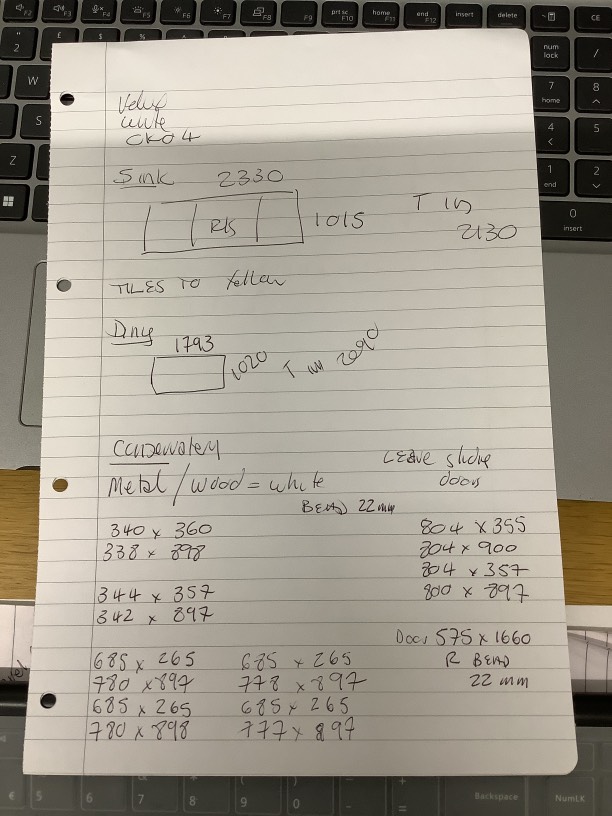 Velux
white
CK04
Sink 2330
R/S
1015
T in
2130
TILES TO Yellow
Dring
1793
1020
T in 2090
Metal / wood = white
LEAVE slidve
doors
BEAD 22 mm
340 x 360
338 x 898
344 x 357
342 x 897
804 x 355
804 x 900
804 x 357
800 x 897
Door 575 x 1660
R BEAD
22 mm
685 x 265 685 x 265
780 x 897 778 x 897
685 x 265 685 x 265
780 x 898 777 x 897
F5
F6
F7
F8
F9
prt sc
F10
home
F11
end
F12
insert
delete
CE
2
W
S
Z
num
lock
/
7
home
8
4
5
1
end
2
0
insert
€ 5
6
7
8
9
0
-
=
Backspace
NumLK